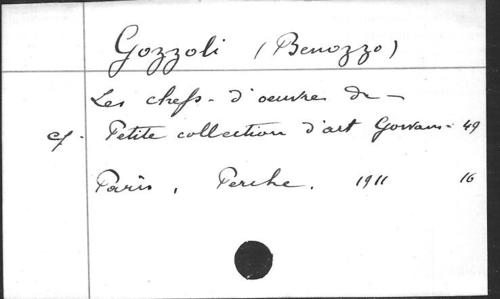 Gozzoli (Benozzo)
Les chefs-d'oeuvre de -
cf. Petite collection d'art Gowans - 49
Paris, Perche. 1911 16